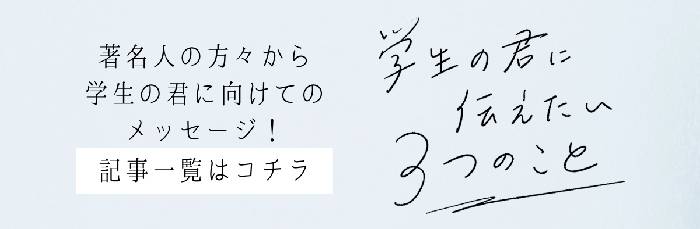 著名人の方々から
学生の君に向けての
メッセージ！
記事一覧はコチラ
学生の君に
伝えたい
3つのこと